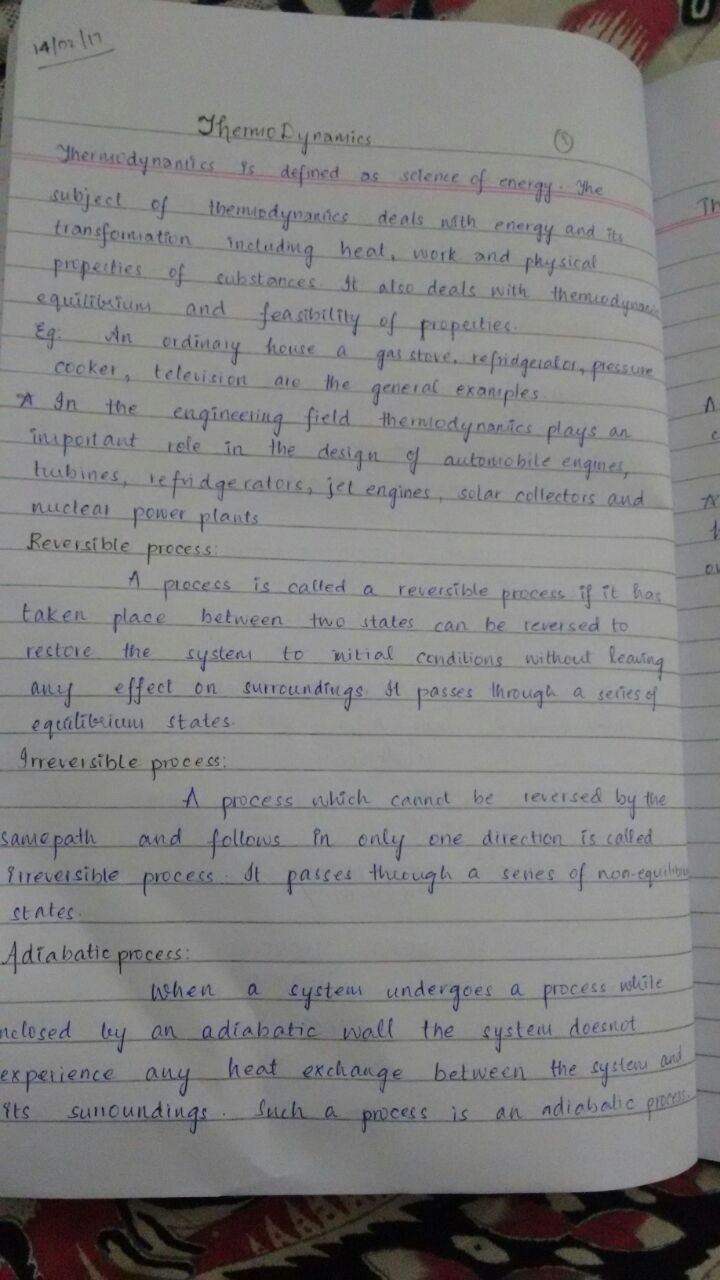 14/07/17
ThermoDynamics
Thermodynamics is defined as science of energy. The
subject of thermodynamics deals with energy and its
transformation including heat, work and physical
properties of substances. It also deals with thermodynamic
equilibrium and feasibility of properties.
Eg: An ordinary house a gas stove, refridgerator, pressure
cooker, television are the general examples.
* In the engineering field thermodynamics plays an
important role in the design of automobile engines,
turbines, refridgerators, jet engines, solar collectors and
nuclear power plants
Reversible process:
A process is called a reversible process if it has
taken place between two states can be reversed to
restore the system to initial conditions without leaving
any effect on surroundings. It passes through a series of
equilibrium states.
Irreversible process:
A process which cannot be reversed by the
same path and follows in only one direction is called
irreversible process. It passes through a series of non-equilibriu
states.
Adiabatic process:
When a system undergoes a process while
nclosed by an adiabatic wall the system doesnot
experience any heat exchange between the system and
its surroundings. Such a process is an adiabatic process.
Th